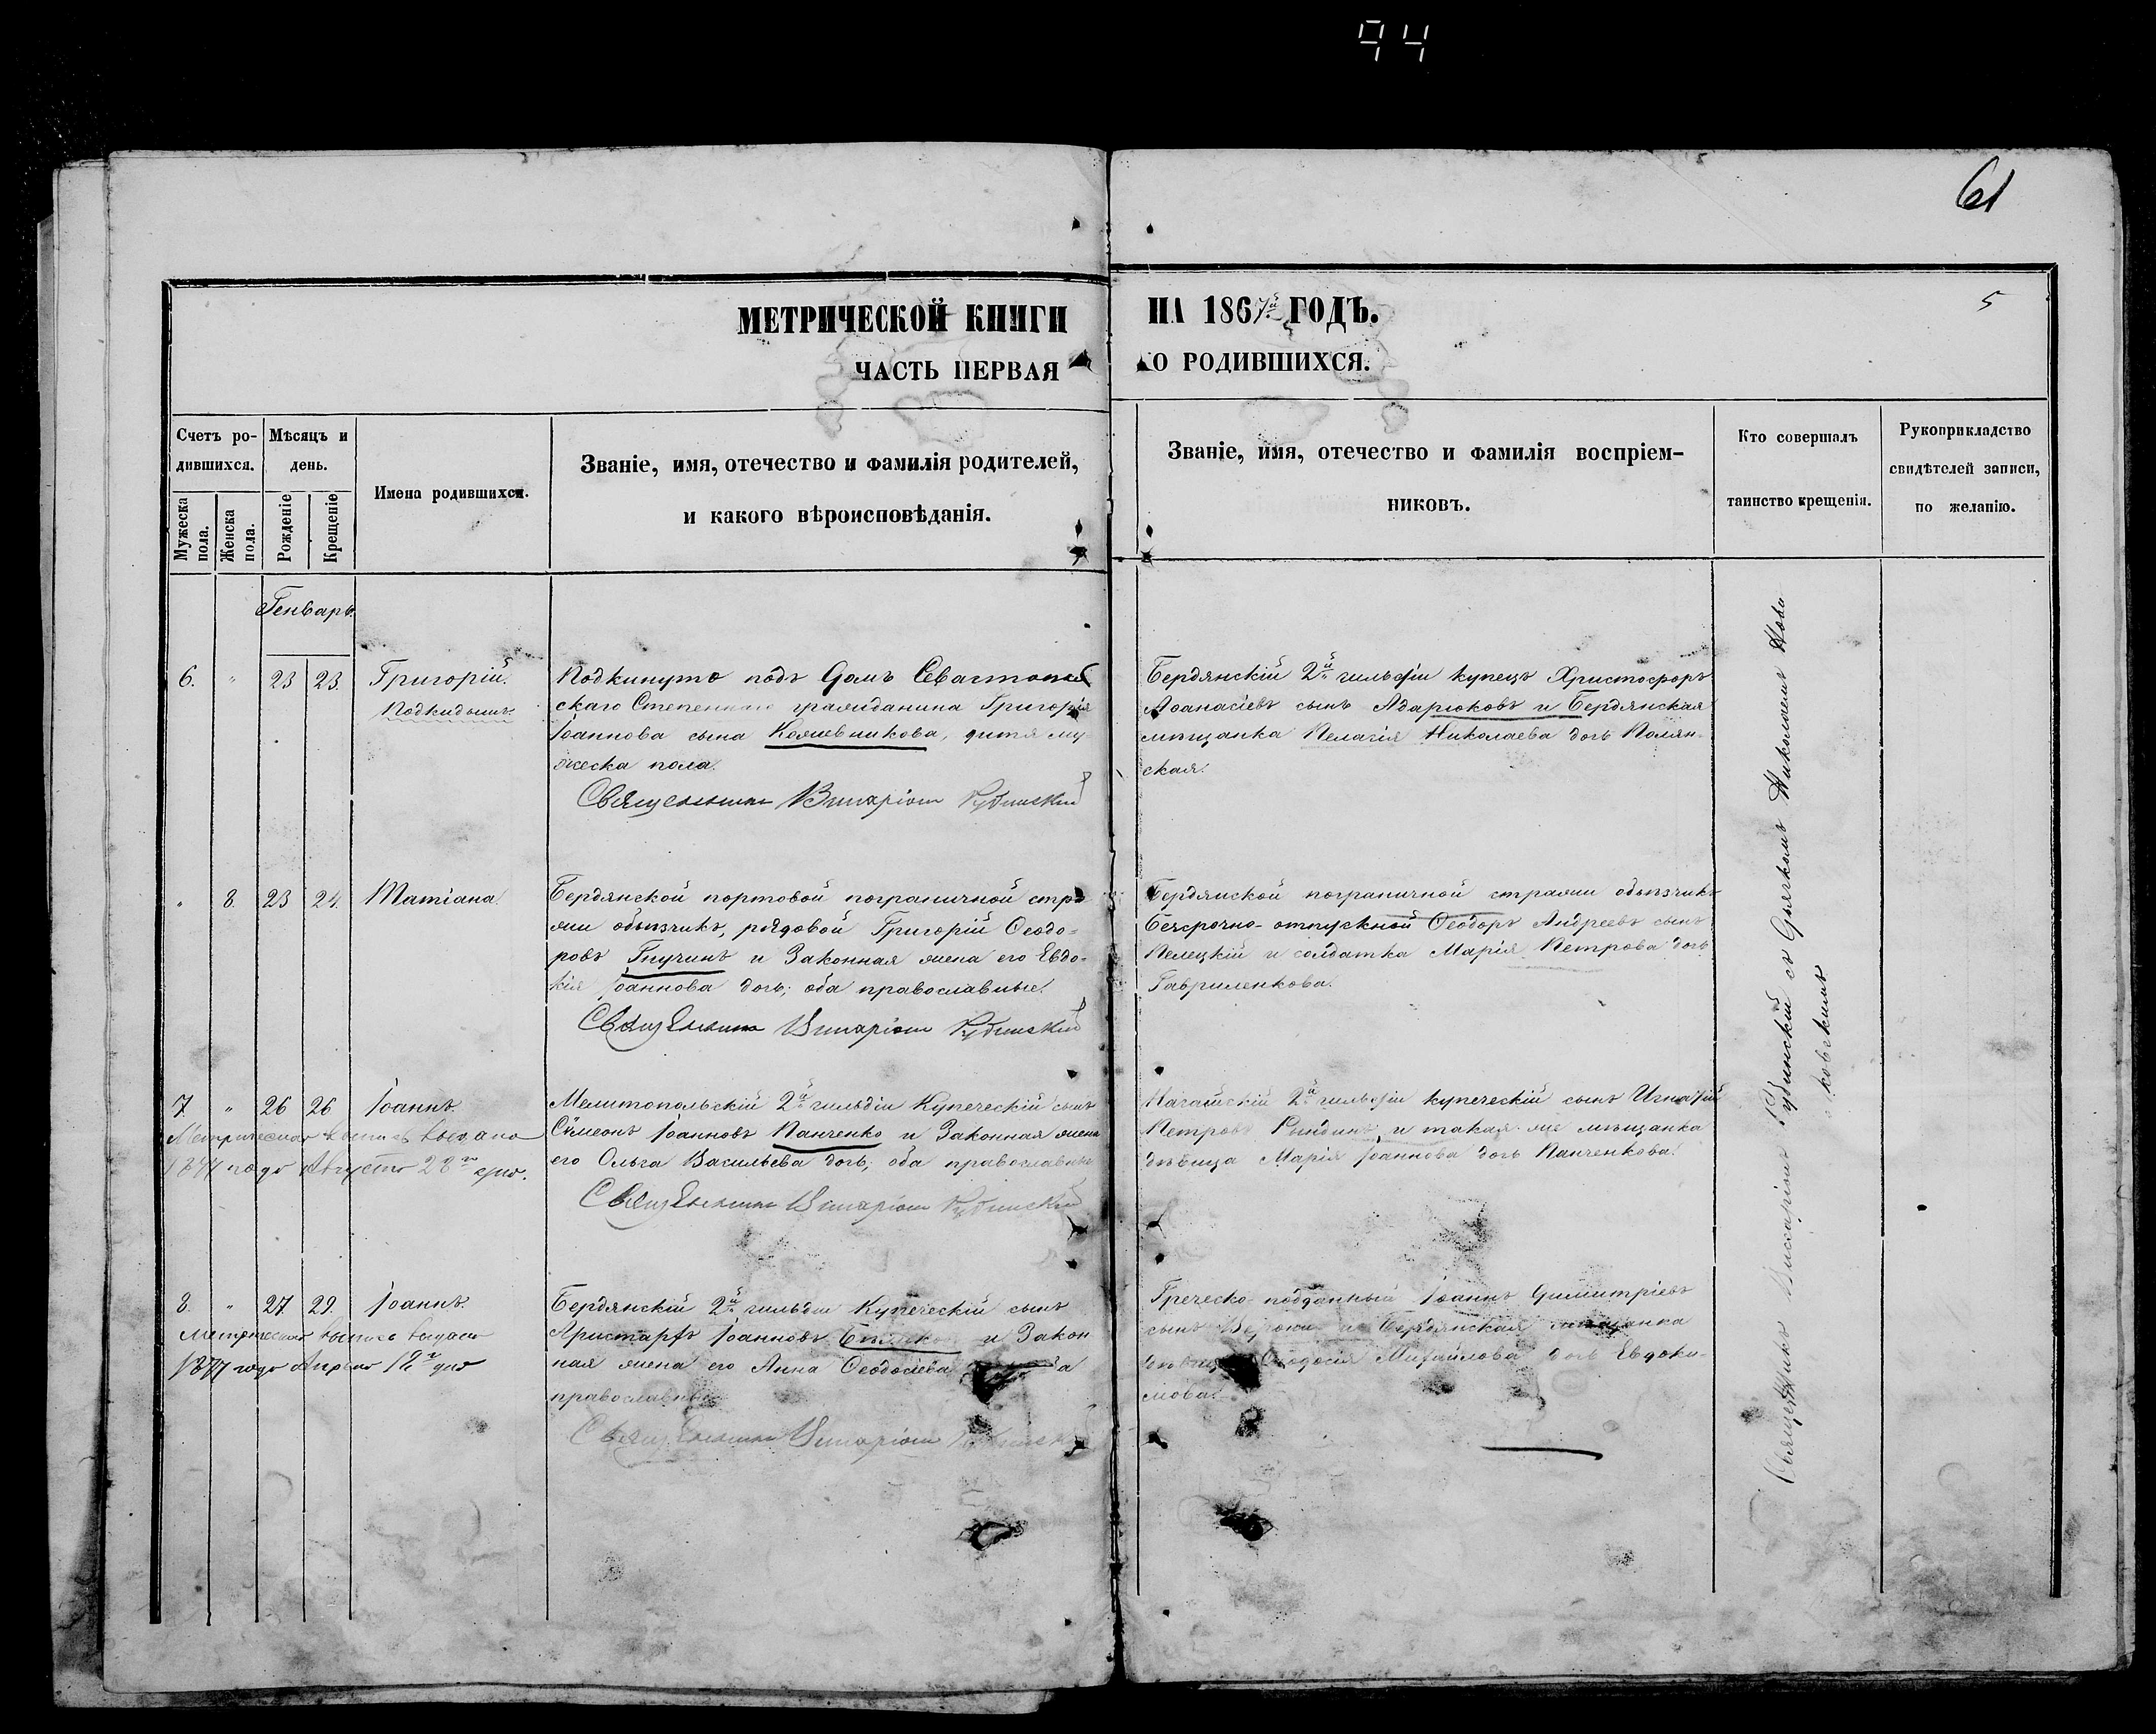 94
61
5
МЕТРИЧЕСКОЙ КНИГИ НА 1867й ГОДЪ.
ЧАСТЬ ПЕРВАЯ О РОДИВШИХСЯ.
Счетъ ро-
дившихся.
Мужеска
пола.
Женска
пола.
Мѣсяцъ и
день.
Рожденіе
Крещеніе
Имена родившихся.
Званіе, имя, отечество и фамилія родителей,
и какого вѣроисповѣданія.
Званіе, имя, отечество и фамилія воспріем-
никовъ.
Кто совершалъ
таинство крещенія.
Рукоприкладство
свидѣтелей записи,
по желанію.
Генварь.
6. " 23 23. Григорій.
Подкидышъ.
Подкинуто подъ домъ Севастополь
скаго Степеннаго гражданина Григорія
Іоаннова сына Кожевникова, дитя му-
жеска пола.
Священникъ Виссаріонъ Рубинскій
Бердянскій 2й гильдіи купецъ Христофоръ
Аѳанасіевъ сынъ Адарюковъ и Бердянская
мѣщанка Пелагія Николаева дочь Полян-
ская.
" 8. 23 24. Татіана.
Бердянской портовой пограничной стра-
жи объѣзчикъ, рядовой Григорій Ѳеодо-
ровъ Гнучинъ и Законная жена его Евдо-
кія Іоаннова дочь; оба православные.
Священникъ Виссаріонъ Рубинскій
Бердянской пограничной стражи объѣзчикъ
Безсрочно-отпускной Ѳеодоръ Андреевъ сынъ
Пелецкій и солдатка Марія Петрова дочь
Гавриленкова.
7. " 26 26 Іоаннъ.
Метрическая выпись выдана
1877 года Августа 28го дня.
Мелитопольскій 2й гильдіи Купеческій сынъ
Симеонъ Іоанновъ Панченко и Законная жена
его Ольга Васильева дочь; оба православные
Священникъ Виссаріонъ Рубинскій
Ногайскій 2й гильдіи купеческій сынъ Игнатій
Петровъ Рындинъ и такая же мѣщанка
дѣвица Марія Іоаннова дочь Панченкова.
8. " 27 29. Іоаннъ.
Метрическая выпись выдана
1877 года Апрѣля 12го дня
Бердянскій 2й гильдіи Купеческій сынъ
Аристархъ Іоанновъ и Закон
ная жена его Анна Ѳеодосіева
православные
Священникъ Виссаріонъ Рубинскій
Греческо-подданный Іоаннъ Димитріевъ
сынъ и Бердянская мѣщанка
дѣвица Ѳеодосія Михайлова дочь Евдоки-
мова.
Священникъ Виссаріонъ Рубинскій съ Дьячкомъ Николаемъ Нови
ковскимъ